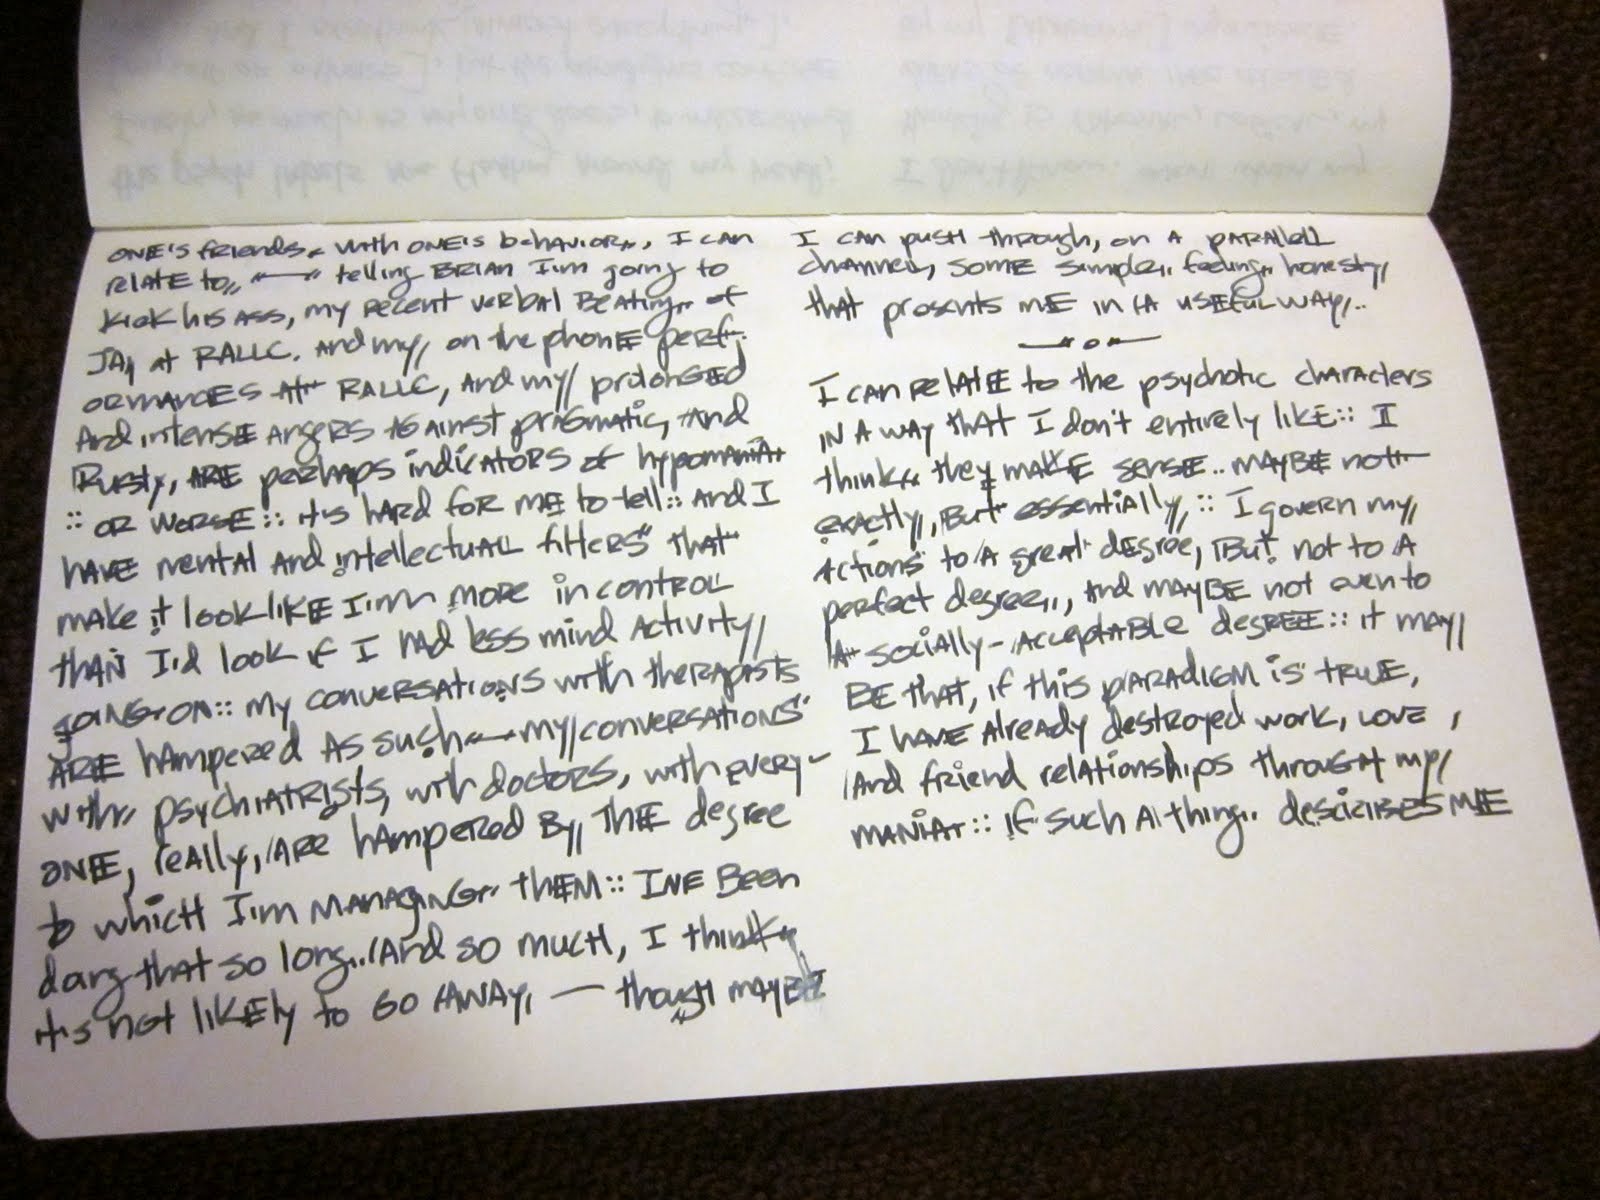 ONE'S friends, with ONE'S behavior,, I can
relate to,, telling BRIAN I'm going to
kick his ass, my recent verbal Beating,, of
JAy at RALLC. And my, on the phone perf-
ormances At RALLC, And my prolonged
And intense angers against pragmatic, And
Rusty, ARE perhaps indicators of hypomania
:: OR WORSE:: it's hard for me to tell:: And I
have mental And intellectual filters that
make it look like I'm more in control
than I'd look if I had less mind activity,
going on:: my conversations with therapists
ARE hampered As such — my conversations
with, psychiatrists, with doctors, with every-
ONE, really, ARE hampered By, THE degree
to which I'm managing,, them:: I'VE Been
doing that so long,, And so much, I think
it's not likely to GO AWAY, — though maybe
I can push through, on a parallel
channel, some simple,, feeling,, honesty,
that presents me in A useful way,..
—o—
I can relate to the psychotic characters
in a way that I don't entirely like:: I
think,, they make sense.. maybe not
exactly, But essentially, :: I govern my,
Actions to A great degree, But not to A
perfect degree,,, And maybe not even to
A socially-Acceptable degree:: it may,
BE that, if this paradigm is true,
I have Already destroyed work, love,
And friend relationships through my,
mania:: if such A thing.. describes me